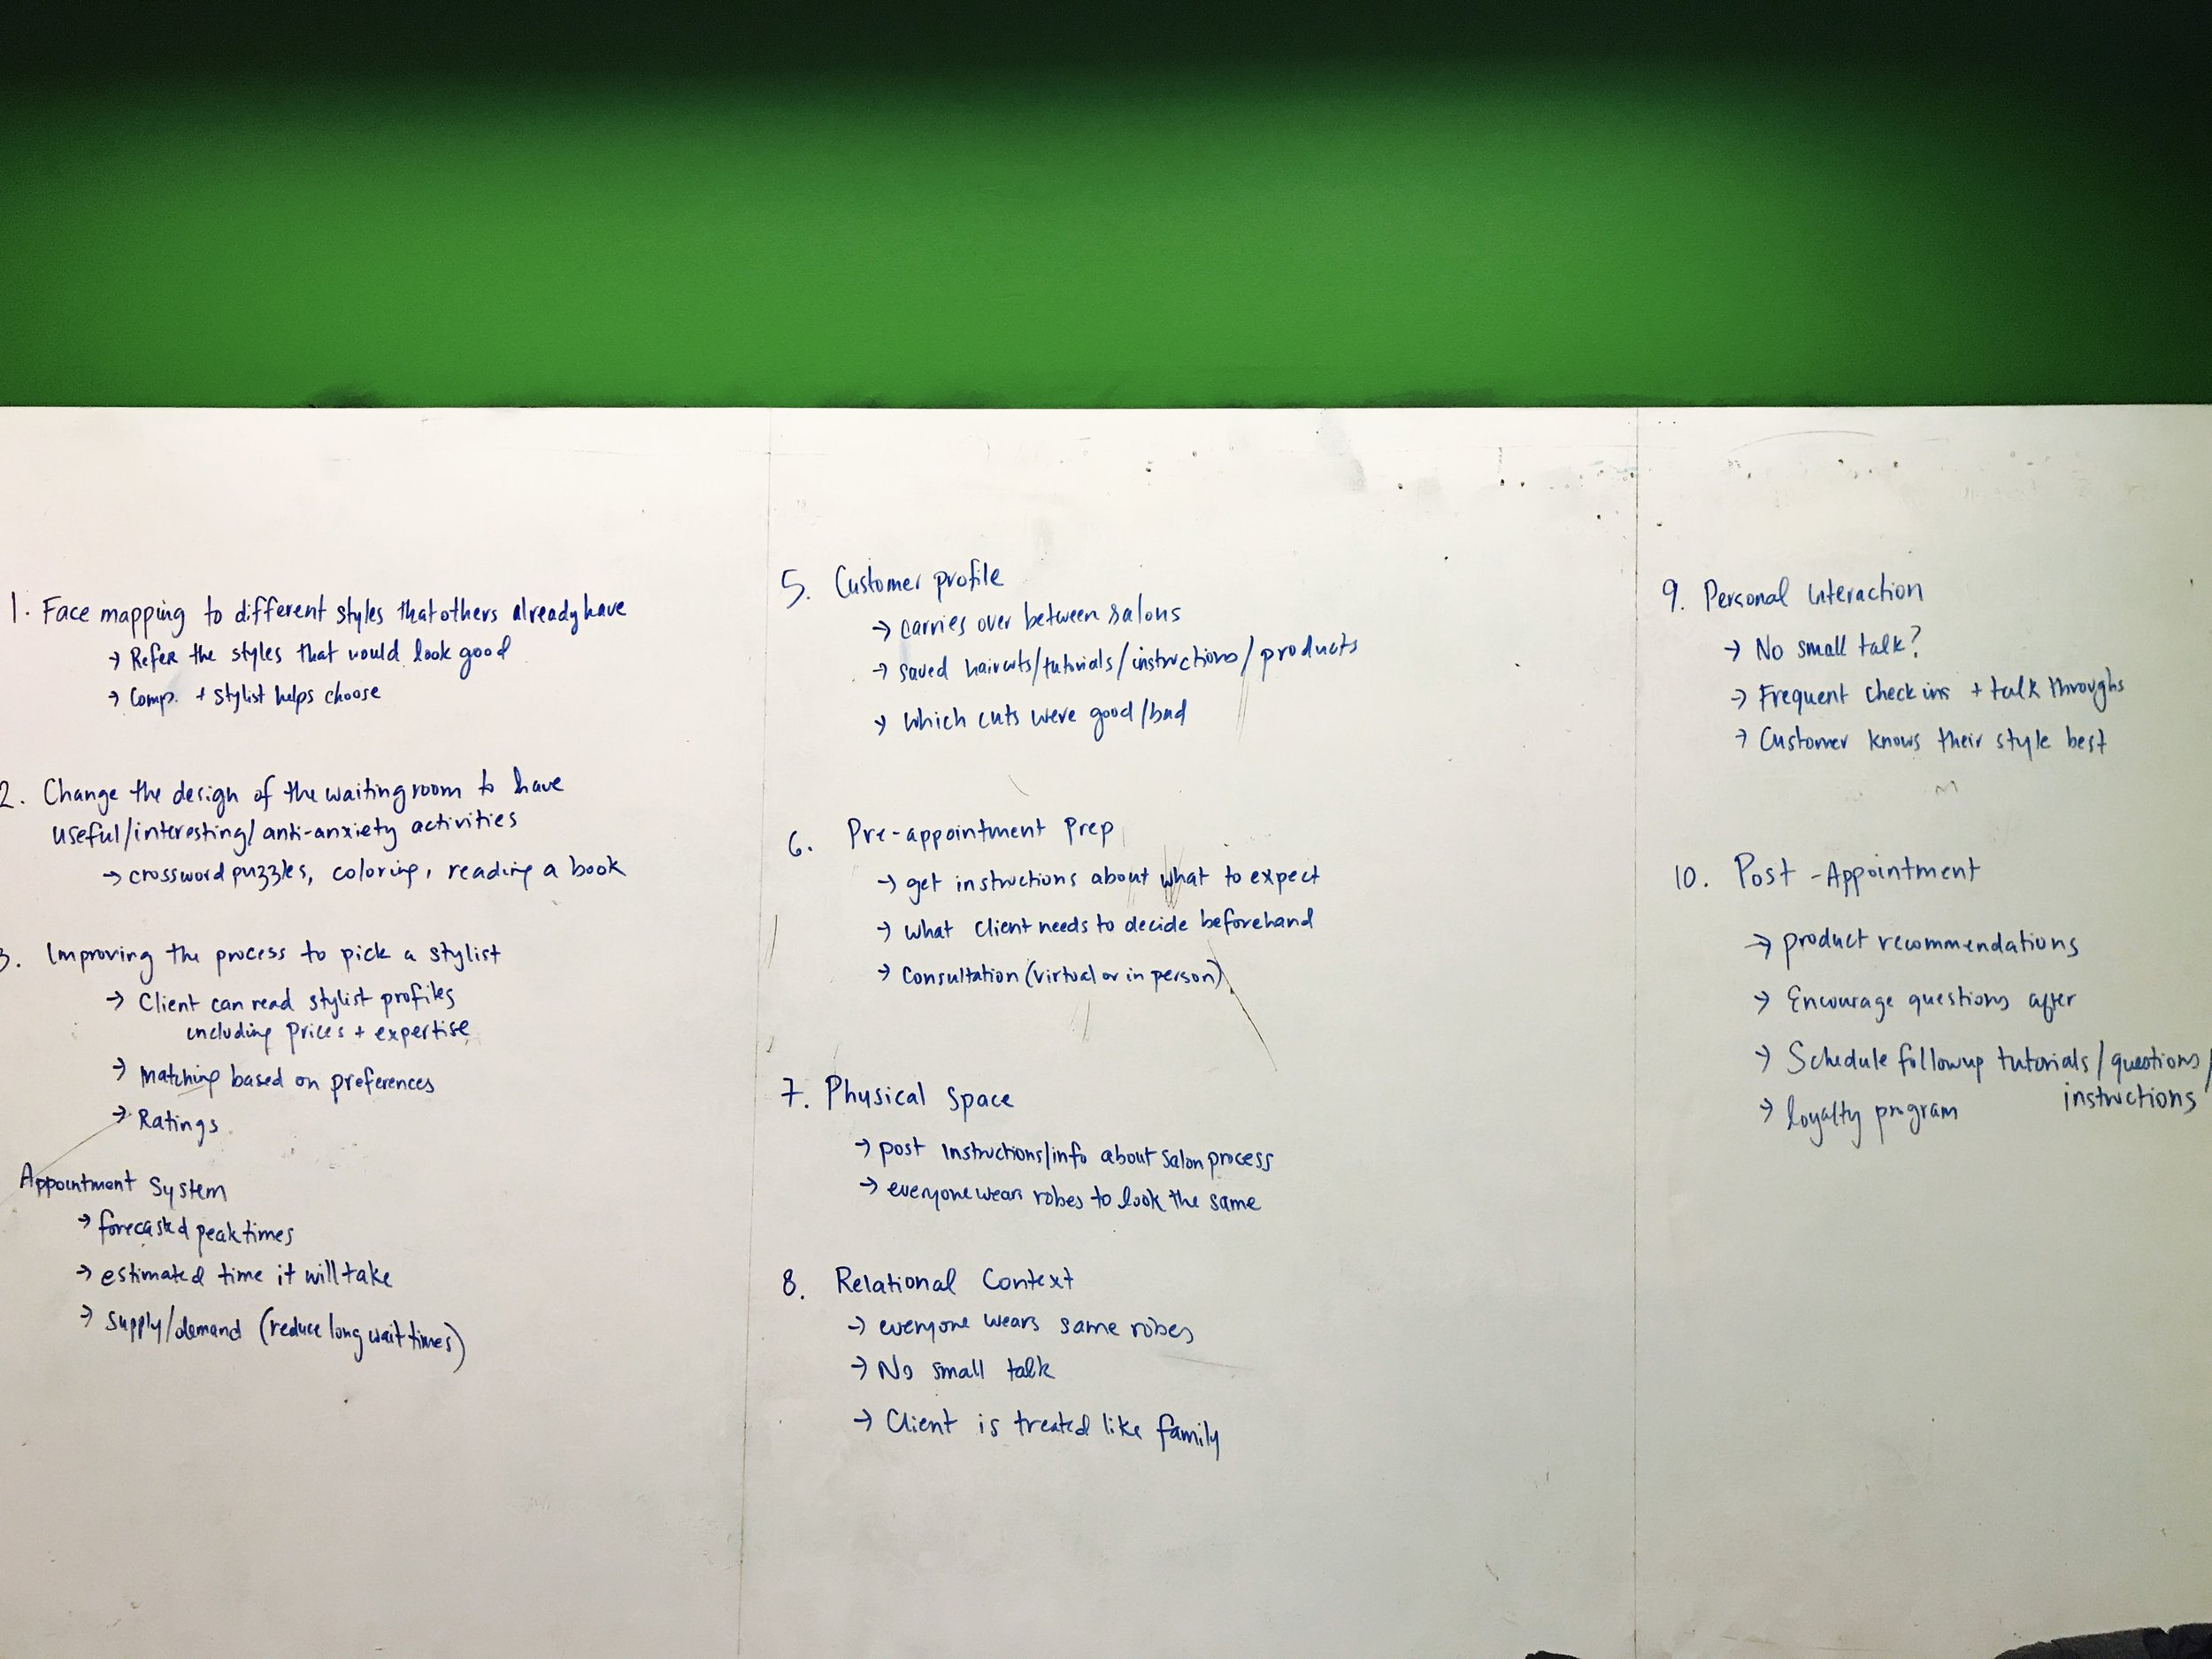 1. Face mapping to different styles that others already have
→ Refer the styles that would look good
→ Comp. + stylist helps choose
2. Change the design of the waiting room to have
useful/interesting/anti-anxiety activities
→ crossword puzzles, coloring, reading a book
3. Improving the process to pick a stylist
→ Client can read stylist profiles
including prices + expertise
→ Matching based on preferences
→ Ratings
Appointment System
→ forecasted peak times
→ estimated time it will take
→ supply/demand (reduce long wait times)
5. Customer profile
→ carries over between salons
→ saved haircuts/tutorials/instructions/products
→ which cuts were good/bad
6. Pre-appointment Prep
→ get instructions about what to expect
→ what client needs to decide beforehand
→ Consultation (virtual or in person)
7. Physical Space
→ post instructions/info about salon process
→ everyone wears robes to look the same
8. Relational Context
→ everyone wears same robes
→ No small talk
→ Client is treated like family
9. Personal Interaction
→ No small talk?
→ Frequent check ins + talk throughs
→ Customer knows their style best
10. Post-Appointment
→ product recommendations
→ Encourage questions after
→ Schedule followup tutorials/questions/
instructions
→ loyalty program